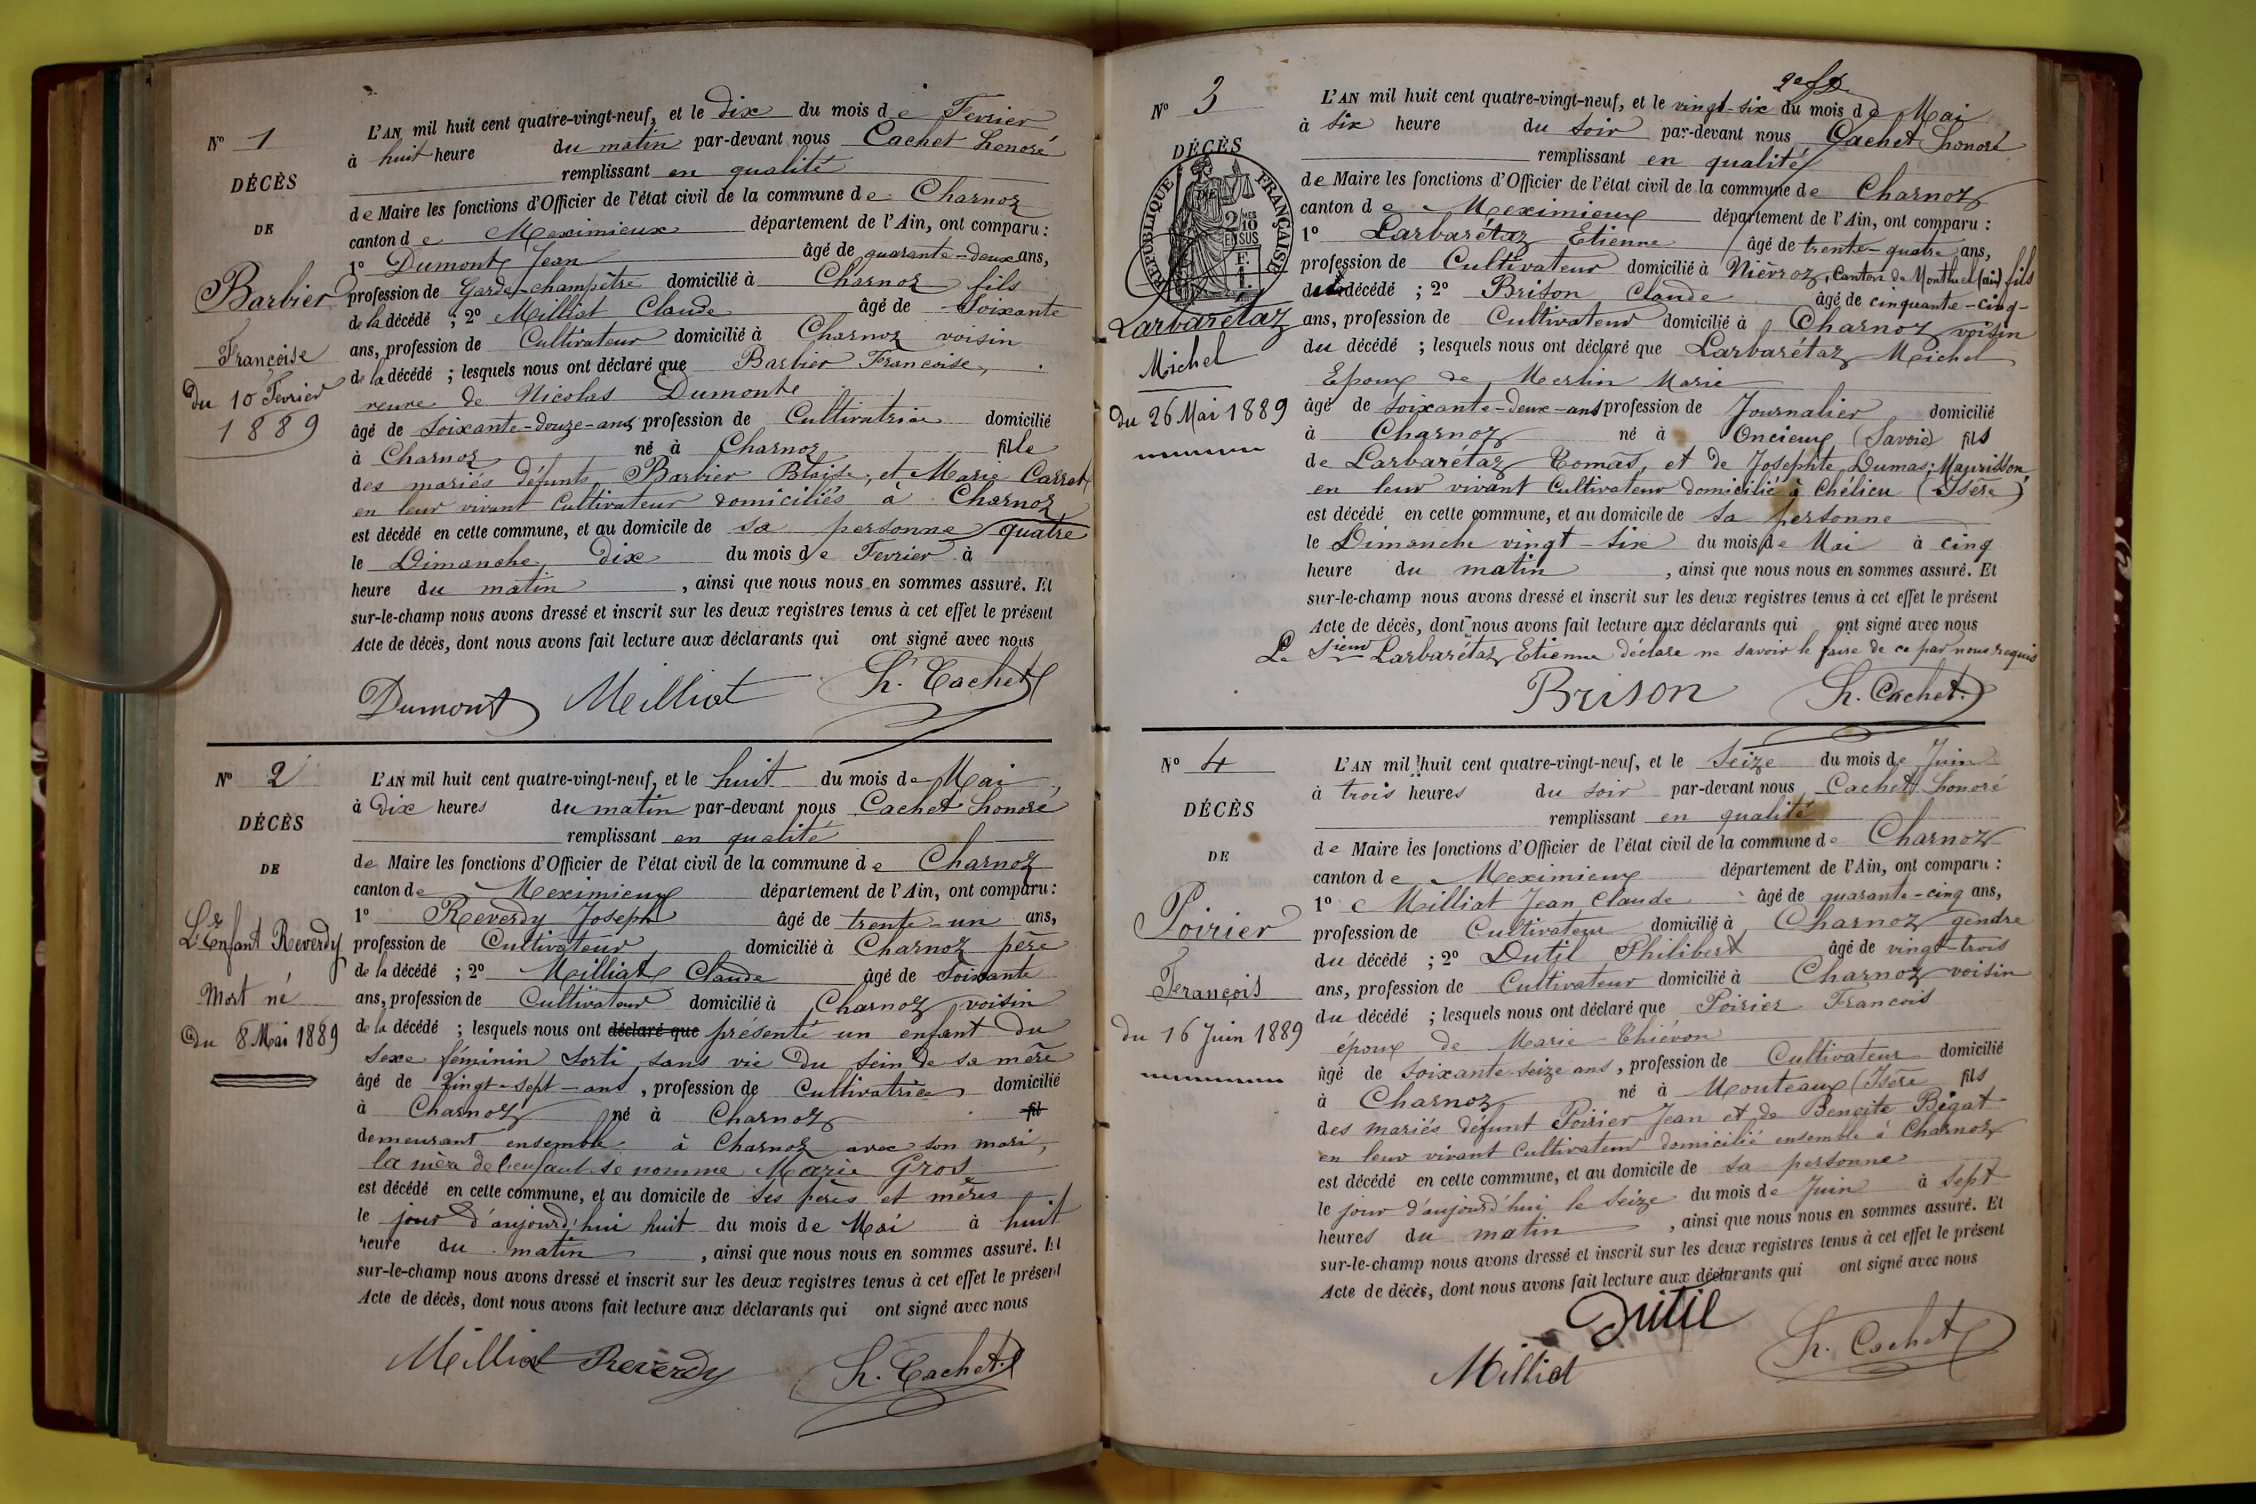 N° 1
DÉCÈS
DE
Barbier
Françoise
du 10 Fevrier
1889
L'AN mil huit cent quatre-vingt-neuf, et le dix du mois de Fevrier
à huit heure du matin par-devant nous Cachet Honoré
remplissant en qualité
de Maire les fonctions d'Officier de l'état civil de la commune de Charnoz
canton de Meximieux département de l'Ain, ont comparu :
1° Dumont Jean âgé de quarante-deux ans,
profession de Garde-champêtre domicilié à Charnoz fils
de la décédé ; 2° Milliat Claude âgé de Soixante
ans, profession de Cultivateur domicilié à Charnoz voisin
de la décédé ; lesquels nous ont déclaré que Barbier Francoise,
veuve de Nicolas Dumont
âgé de soixante-douze-ans profession de Cultivatrice domicilié
à Charnoz né à Charnoz fille
des mariés défunts Barbier Blaise, et Marie Carret
en leur vivant Cultivateur domiciliés à Charnoz
est décédé en cette commune, et au domicile de sa personne
le Dimanche, dix du mois de Fevrier à quatre
heure du matin , ainsi que nous nous en sommes assuré. Et
sur-le-champ nous avons dressé et inscrit sur les deux registres tenus à cet effet le présent
Acte de décès, dont nous avons fait lecture aux déclarants qui ont signé avec nous
Dumont Milliat H. Cachet
N° 2
DÉCÈS
DE
L'Enfant Reverdy
Mort né
du 8 Mai 1889
L'AN mil huit cent quatre-vingt-neuf, et le huit du mois de Mai
à Dix heures du matin par-devant nous Cachet Honoré
remplissant en qualité
de Maire les fonctions d'Officier de l'état civil de la commune de Charnoz
canton de Meximieux département de l'Ain, ont comparu :
1° Reverdy Joseph âgé de trente-un ans,
profession de Cultivateur domicilié à Charnoz père
de la décédé ; 2° Milliat Claude âgé de Soixante
ans, profession de Cultivateur domicilié à Charnoz voisin
de la décédé ; lesquels nous ont déclaré que présenté un enfant du
sexe féminin sorti sans vie du sein de sa mère
âgé de vingt-sept-ans, profession de Cultivatrice domicilié
à Charnoz né à Charnoz fil
demeurant ensemble à Charnoz avec son mari,
la mère de l'enfant se nomme Marie Gros
est décédé en cette commune, et au domicile de ses pères et mères
le jour d'aujourd'hui huit du mois de Mai à huit
heure du matin , ainsi que nous nous en sommes assuré. Et
sur-le-champ nous avons dressé et inscrit sur les deux registres tenus à cet effet le présent
Acte de décès, dont nous avons fait lecture aux déclarants qui ont signé avec nous
Milliat Reverdy H. Cachet
N° 3
DÉCÈS
DE
RÉPUBLIQUE FRANÇAISE
2/10 EN SUS
Larbarétaz
Michel
du 26 Mai 1889
L'AN mil huit cent quatre-vingt-neuf, et le vingt-six du mois de Mai
à six heure du soir par-devant nous Cachet Honoré
remplissant en qualité
de Maire les fonctions d'Officier de l'état civil de la commune de Charnoz
canton de Meximieux département de l'Ain, ont comparu :
1° Larbarétaz Etienne âgé de trente-quatre ans,
profession de Cultivateur domicilié à Nièvroz, Canton de Montluel (ain) fils
du décédé ; 2° Brison Claude âgé de cinquante-cinq-
ans, profession de Cultivateur domicilié à Charnoz voisin
du décédé ; lesquels nous ont déclaré que Larbarétaz Michel
Epoux de Merlin Marie
âgé de soixante-deux-ans profession de Journalier domicilié
à Charnoz né à Oncieux (Savoie) fils
de Larbarétaz Tomas, et de Josephte Dumas; Maurisson
en leur vivant Cultivateur domicilié à Chélieu (Isère)
est décédé en cette commune, et au domicile de sa personne
le Dimanche vingt-six du mois de Mai à cinq
heure du matin , ainsi que nous nous en sommes assuré. Et
sur-le-champ nous avons dressé et inscrit sur les deux registres tenus à cet effet le présent
Acte de décès, dont nous avons fait lecture aux déclarants qui ont signé avec nous
Le Sieur Larbarétaz Etienne déclare ne savoir le faire de ce par nous requis
Brison H. Cachet
N° 4
DÉCÈS
DE
Poirier
François
du 16 Juin 1889
L'AN mil huit cent quatre-vingt-neuf, et le Seize du mois de Juin
à trois heures du soir par-devant nous Cachet Honoré
remplissant en qualité
de Maire les fonctions d'Officier de l'état civil de la commune de Charnoz
canton de Meximieux département de l'Ain, ont comparu :
1° Milliat Jean Claude âgé de quarante-cinq ans,
profession de Cultivateur domicilié à Charnoz gendre
du décédé ; 2° Dutil Philibert âgé de vingt-trois
ans, profession de Cultivateur domicilié à Charnoz voisin
du décédé ; lesquels nous ont déclaré que Poirier Francois
époux de Marie Thiévon
âgé de soixante-seize ans, profession de Cultivateur domicilié
à Charnoz né à Mouteaux (Isère fils
des mariés défunt Poirier Jean et de Benoite Bigat
en leur vivant Cultivateur domicilié ensemble à Charnoz
est décédé en cette commune, et au domicile de sa personne
le jour d'aujourd'hui le Seize du mois de Juin à sept
heures du matin , ainsi que nous nous en sommes assuré. Et
sur-le-champ nous avons dressé et inscrit sur les deux registres tenus à cet effet le présent
Acte de décès, dont nous avons fait lecture aux déclarants qui ont signé avec nous
Dutil
Milliat H. Cachet